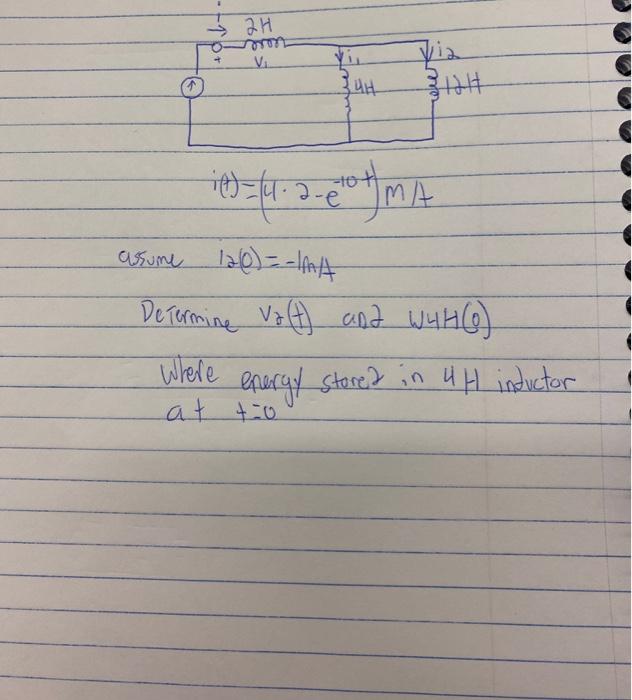 i
2H
+ V₁ i₁ i2
4H 12H
i(t)=(4·2-e^-10t)mA
assume i2(0)=-1mA
Determine V2(t) and W4H(0)
Where energy stored in 4H inductor
at t=0